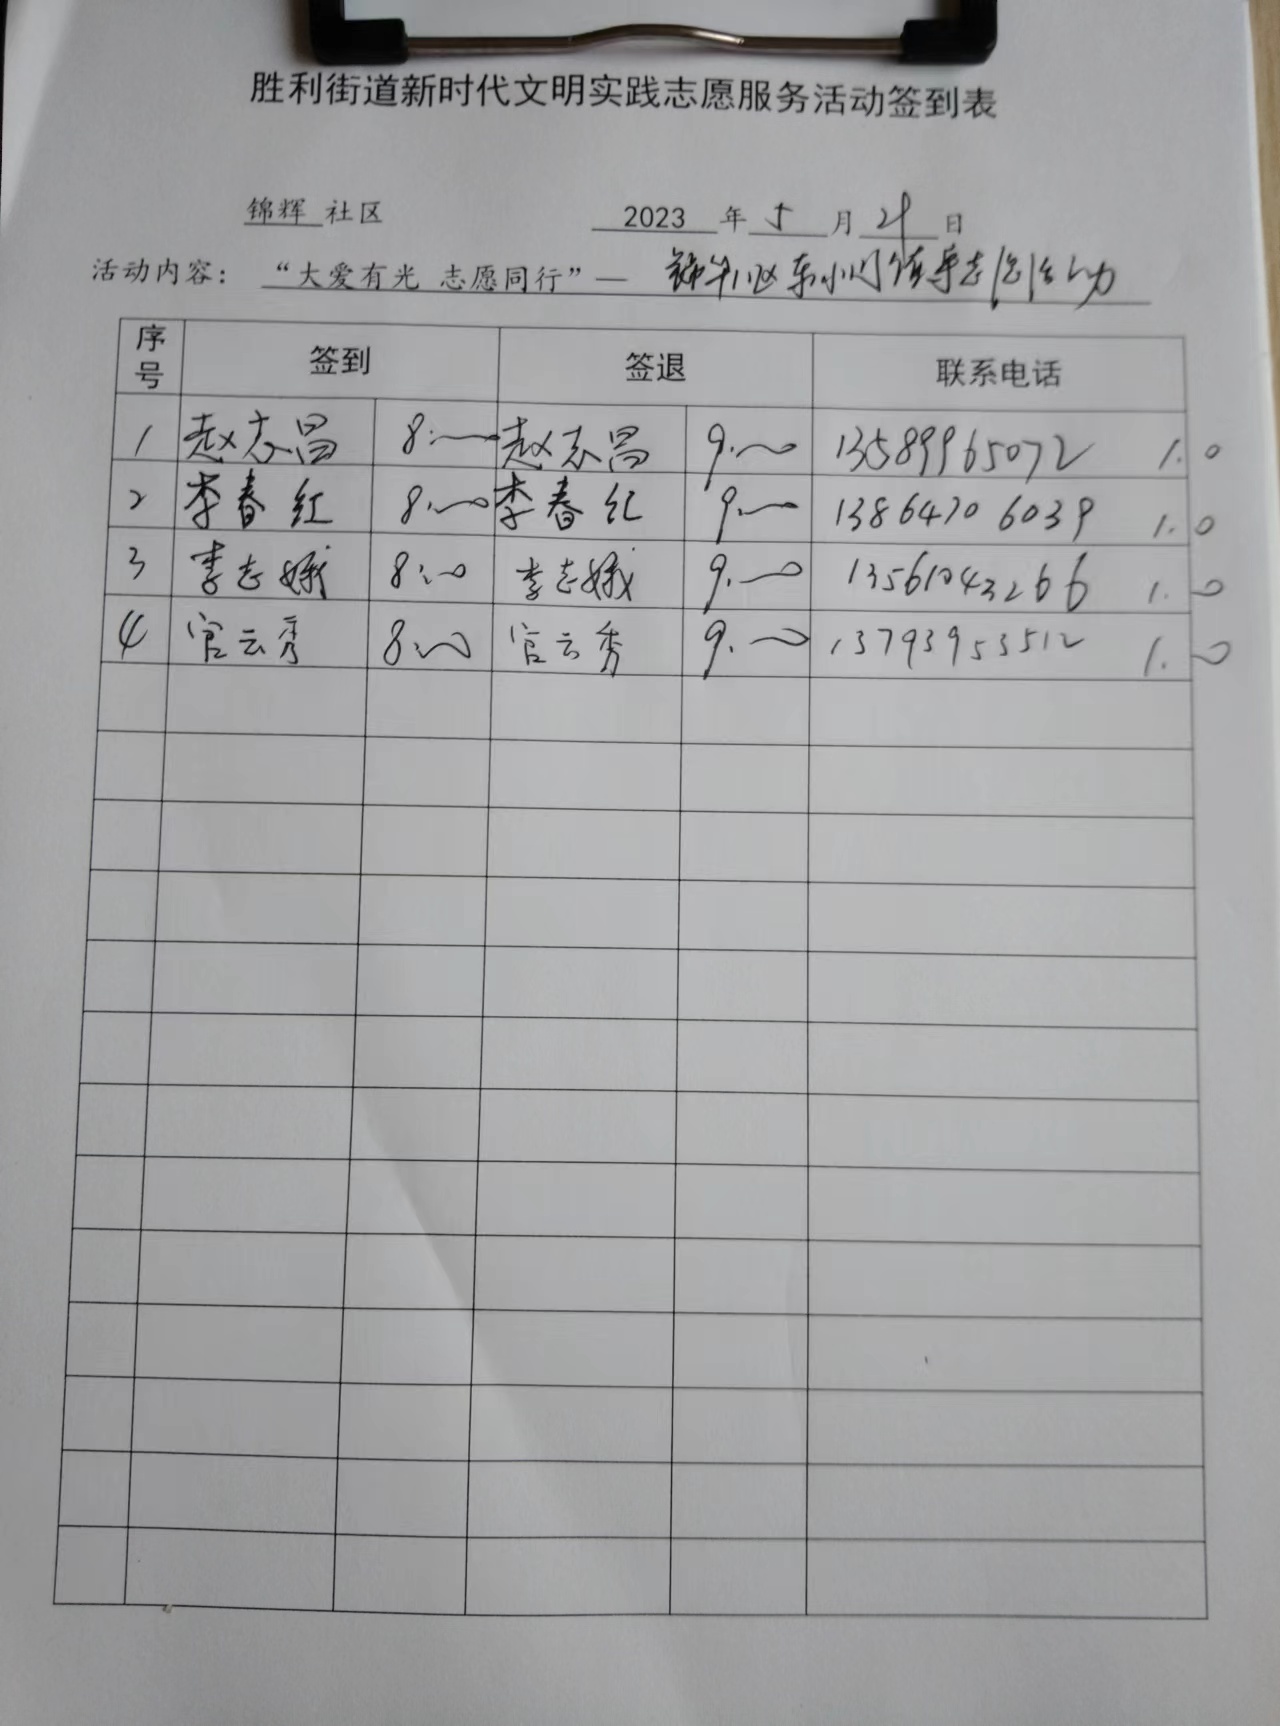 胜利街道新时代文明实践志愿服务活动签到表
锦辉 社区 2023 年 5 月 21 日
活动内容： “大爱有光 志愿同行”— 锦华小区东小门值导志愿活动
序号 签到 签退 联系电话
1 赵志昌 8:00 赵志昌 9:00 13589965072 1.0
2 李春红 8:00 李春红 9:00 13864706039 1.0
3 李志娥 8:00 李志娥 9:00 13561043266 1.0
4 官云秀 8:00 官云秀 9:00 13793953512 1.0